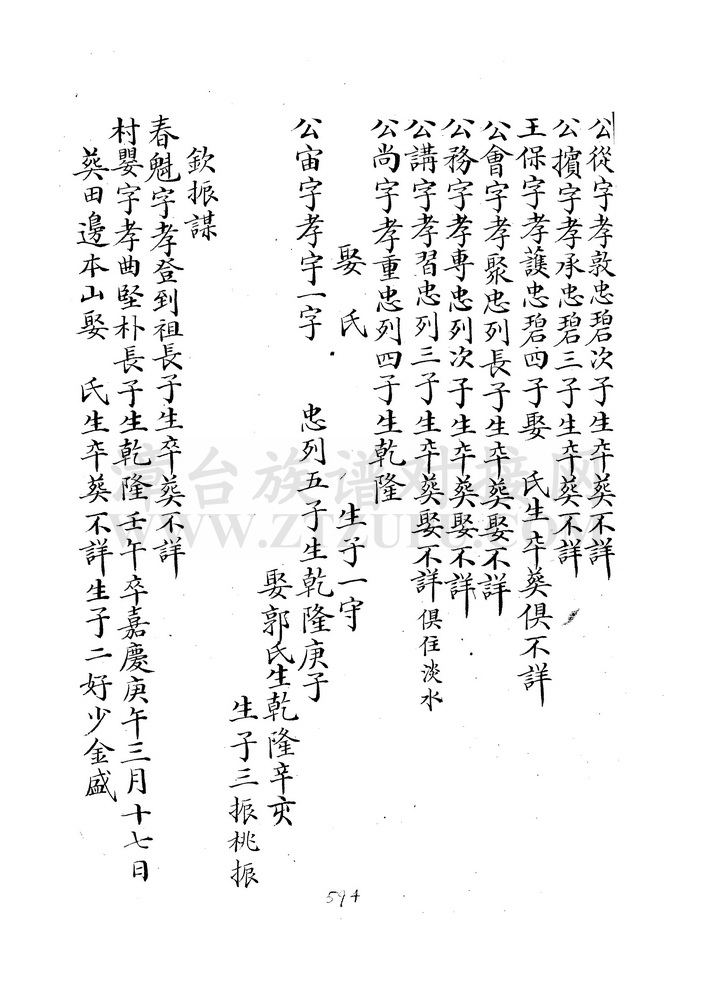 公從字孝敦忠碧次子生卒葬不詳
公擯字孝承忠碧三子生卒葬不詳
王保字孝護忠碧四子娶　氏生卒葬俱不詳
公會字孝聚忠列長子生卒葬娶不詳
公務字孝専忠列次子生卒葬娶不詳
公講字孝習忠列三子生卒葬娶不詳俱住淡水
公尚字孝重忠列四子生乾隆
娶　氏　生子一守
公宙字孝宇一字　忠列五子生乾隆庚子
娶郭氏生乾隆辛亥
生子三振桃振
欽振謀
春魁字孝登到祖長子生卒葬不詳
村嬰字孝曲堅朴長子生乾隆壬午卒嘉慶庚午三月十七日
葬田邊本山娶　氏生卒葬不詳生子二好少金盛
594
漳台族谱对接网
WWW.ZTZUPU.COM